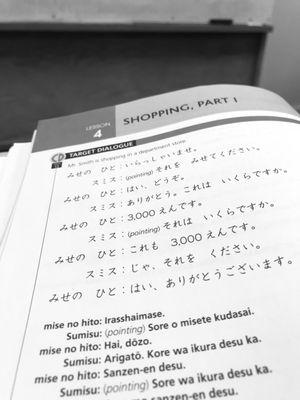 LESSON
4
SHOPPING, PART 1
TARGET DIALOGUE
Mr. Smith is shopping in a department store.
みせの ひと：いらっしゃいませ。
スミス：(pointing) それを みせてください。
みせの ひと：はい、どうぞ。
スミス：ありがとう。これは いくらですか。
みせの ひと：3,000えんです。
スミス：(pointing) それは いくらですか。
みせの ひと：これも 3,000えんです。
スミス：じゃ、それを ください。
みせの ひと：はい、ありがとうございます。
mise no hito: Irasshaimase.
Sumisu: (pointing) Sore o misete kudasai.
mise no hito: Hai, dōzo.
Sumisu: Arigatō. Kore wa ikura desu ka.
mise no hito: Sanzen-en desu.
Sumisu: (pointing) Sore wa ikura desu ka.